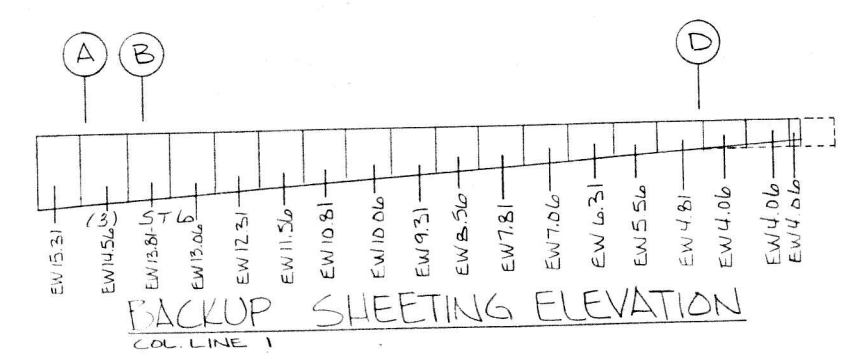 A B D
(3) ST6
EW15.31
EW14.56
EW13.81
EW13.06
EW12.31
EW11.56
EW10.81
EW10.06
EW9.31
EW8.56
EW7.81
EW7.06
EW6.31
EW5.56
EW4.81
EW4.06
EW4.06
EW4.06
BACKUP SHEETING ELEVATION
COL. LINE 1